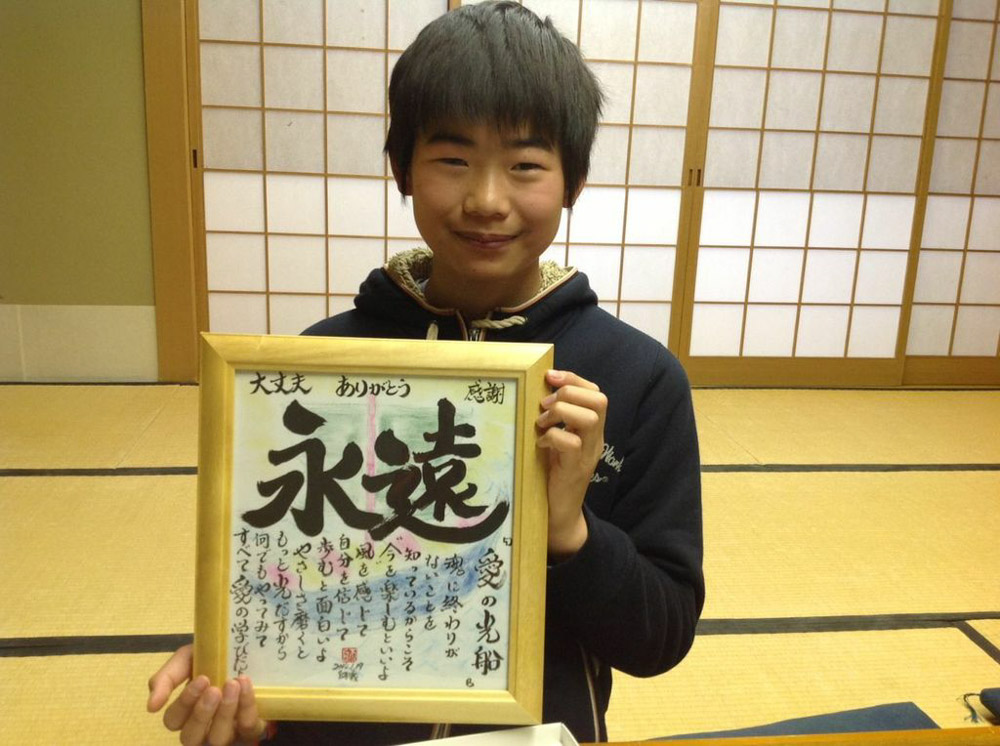 大丈夫 ありがとう 感謝
永遠
「愛の光船」
魂に終わりが
ないことを
知っているからこそ
“今”を楽しむといいよ
風を感じて
自分を信じて
歩むと面白いよ
やさしさ磨くと
もっと光だすから
何でもやってみて
すべて愛の学びだ